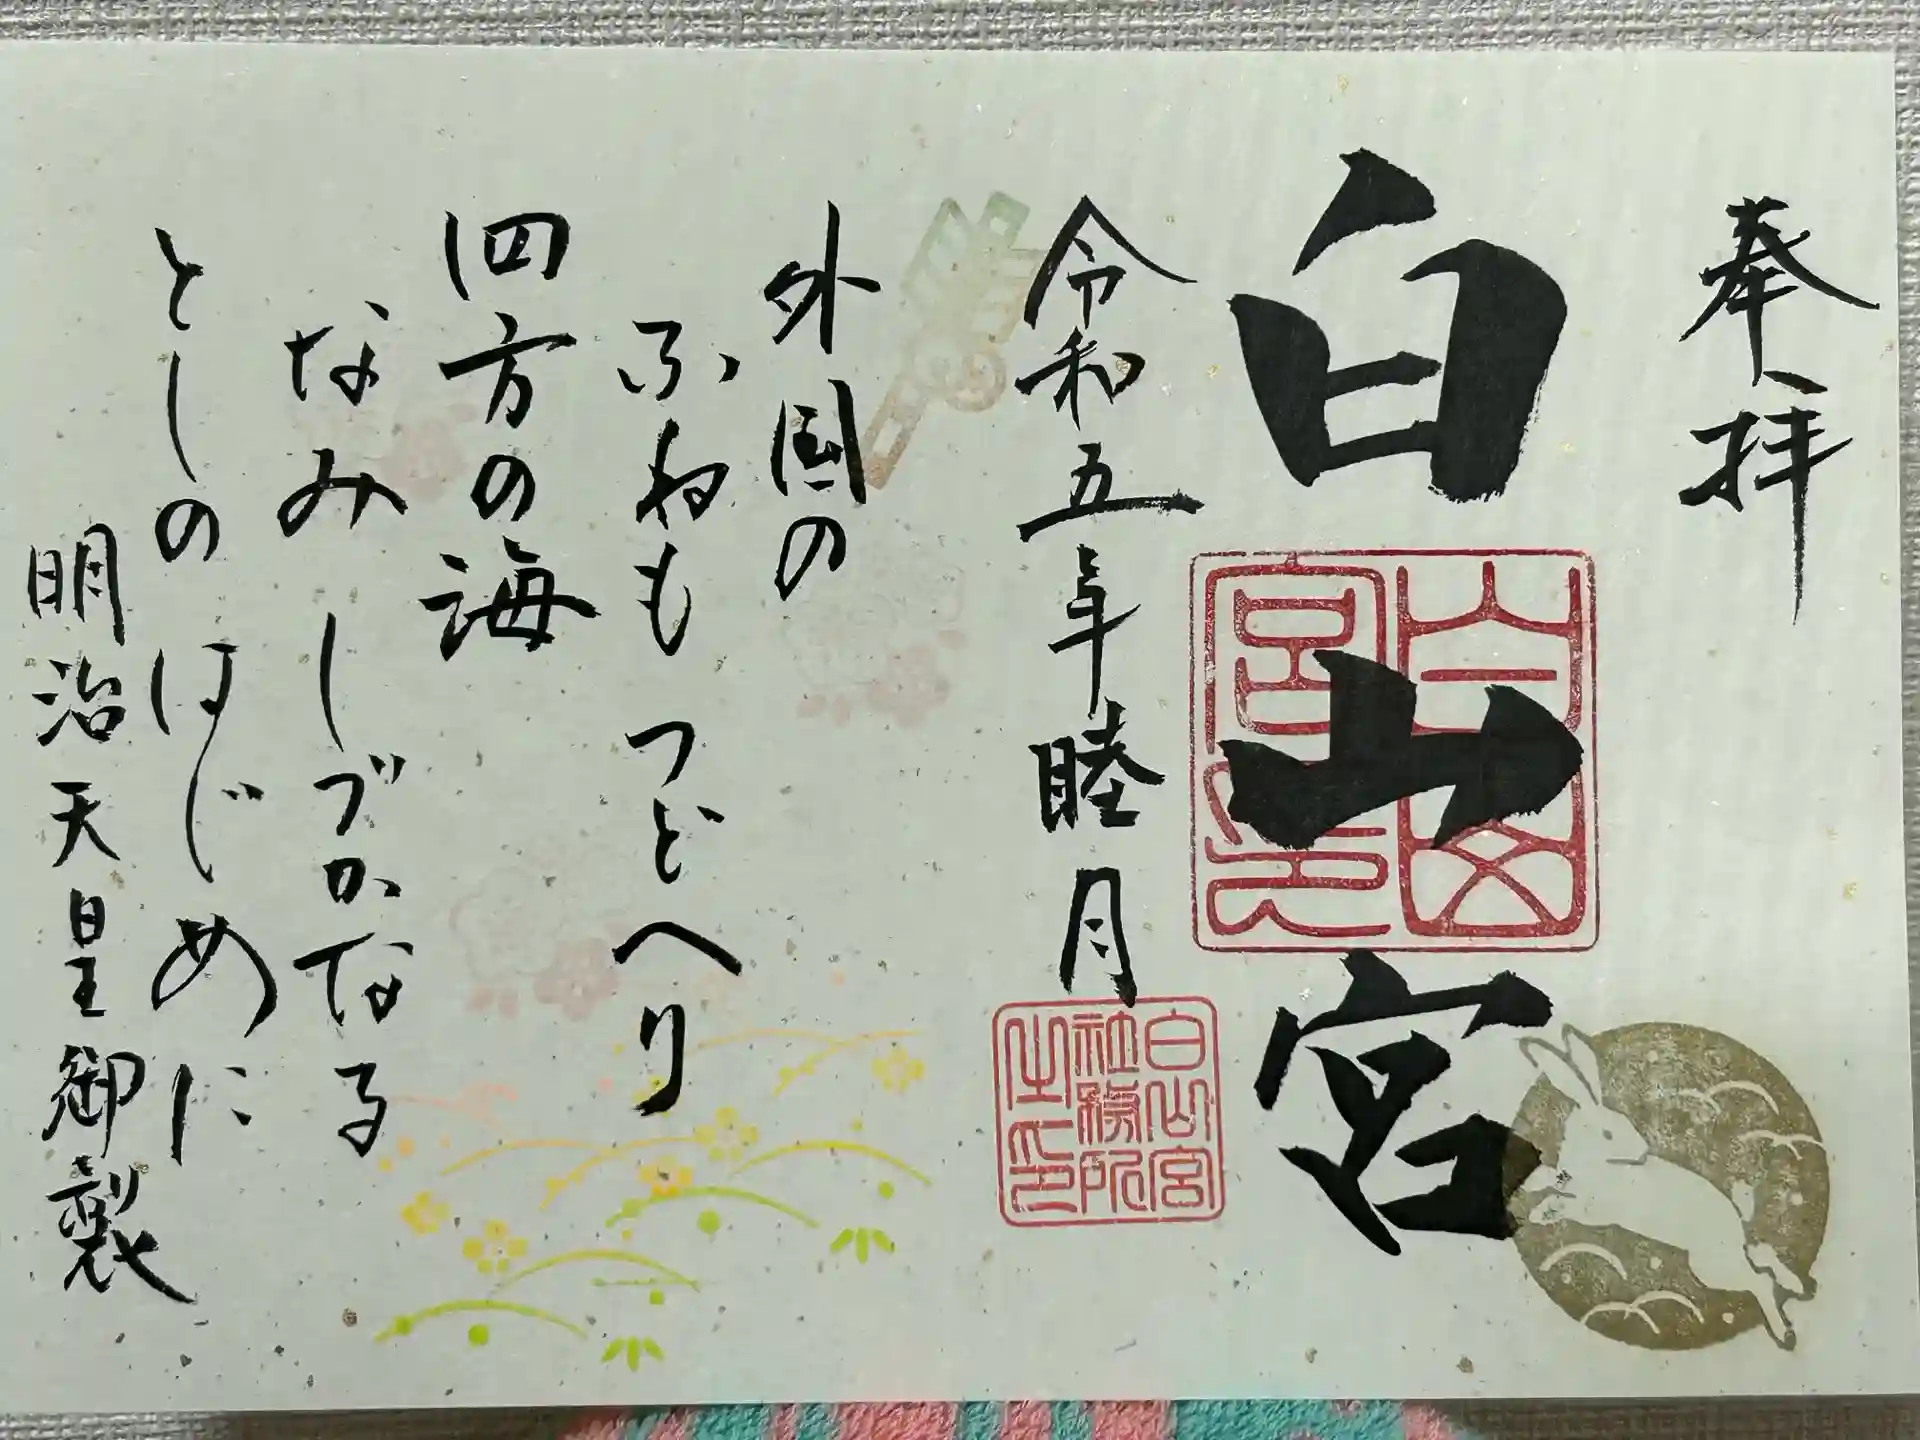 奉拝
白山宮
白山宮印
令和五年睦月
白山宮
社務所
之印
外国の
ふねもつどへり
四方の海
なみしづかなる
としのはじめに
明治天皇御製